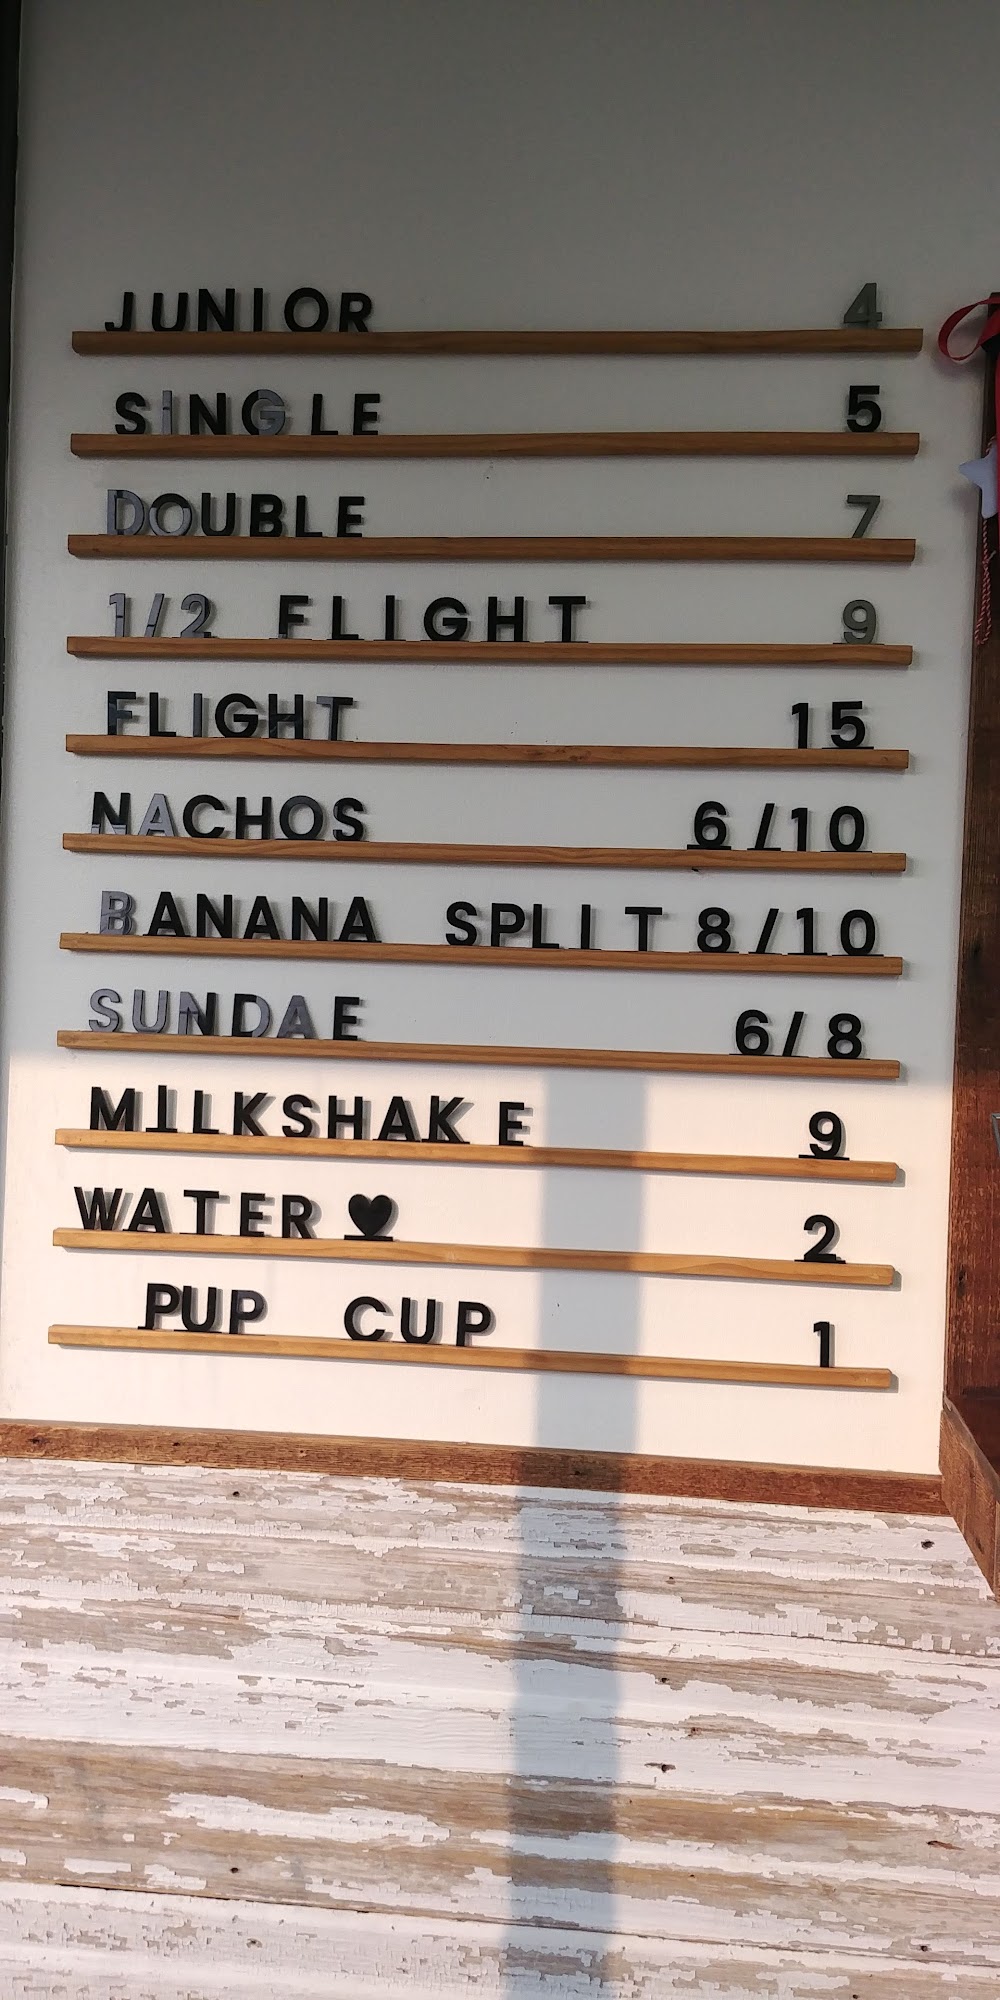 JUNIOR 4
SINGLE 5
DOUBLE 7
1/2 FLIGHT 9
FLIGHT 15
NACHOS 6/10
BANANA SPLIT 8/10
SUNDAE 6/8
MILKSHAKE 9
WATER ♥ 2
PUP CUP 1